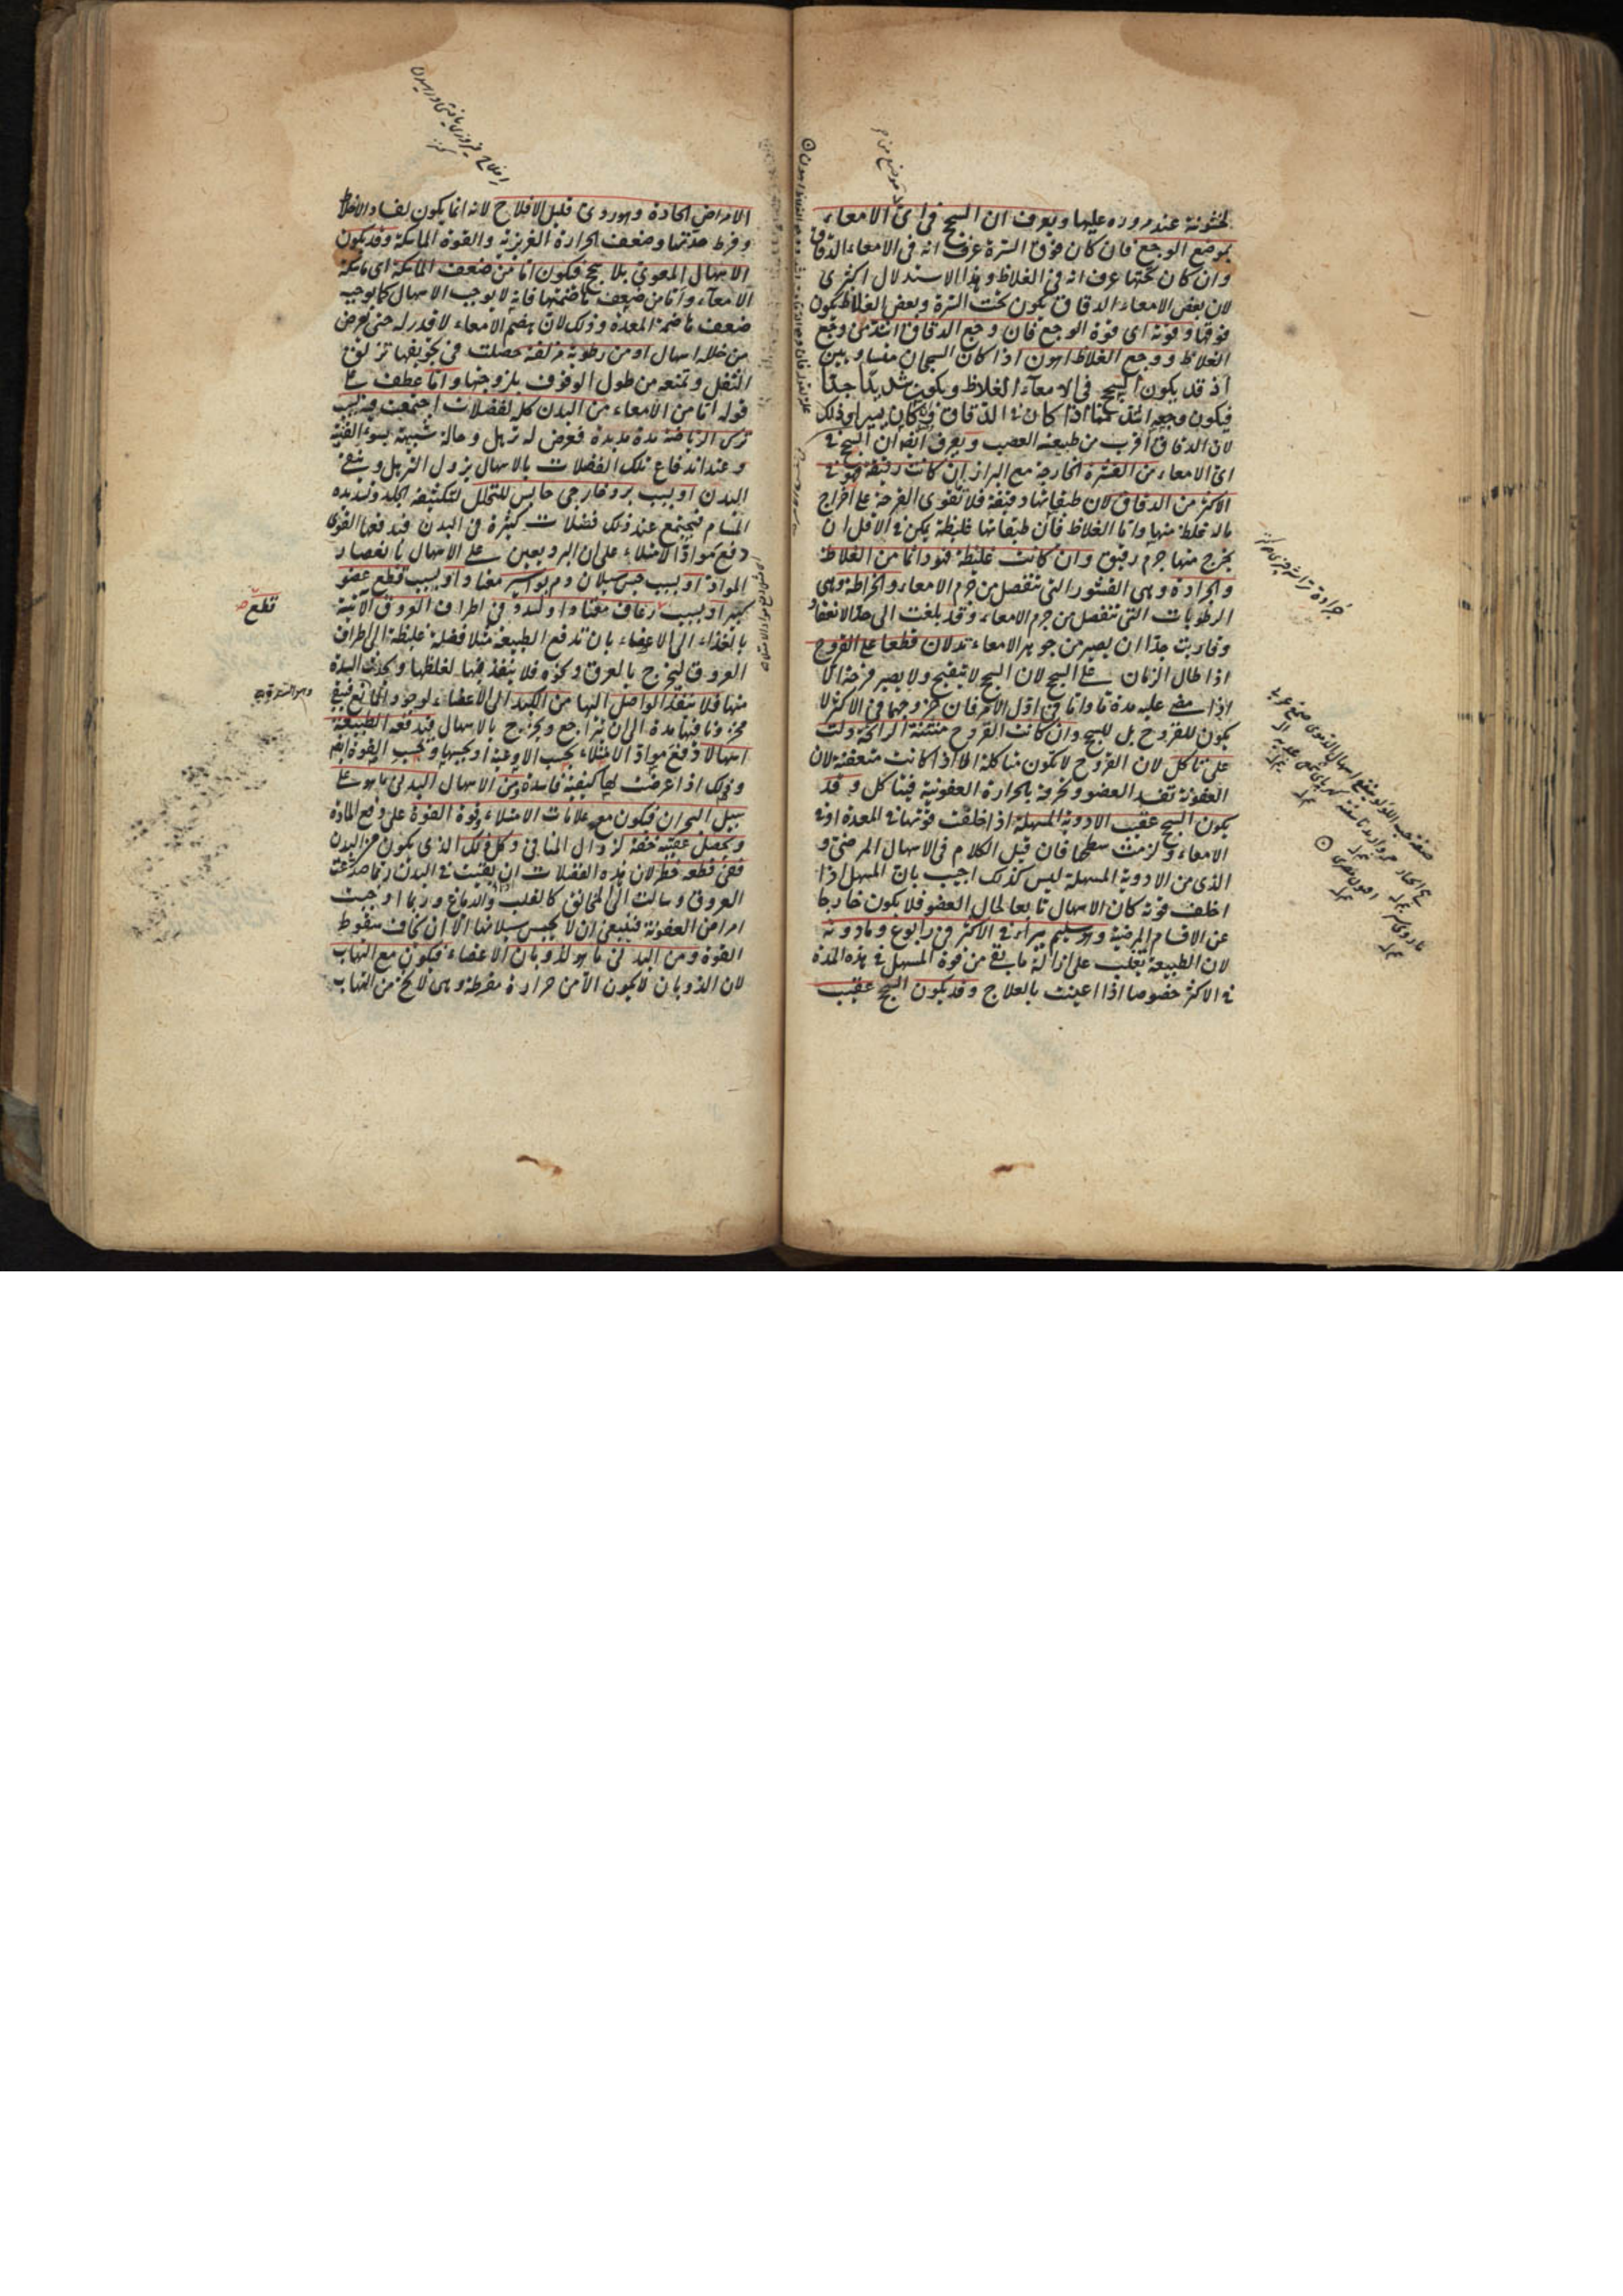 لخشونة عند مروره عليها ويعرف ان السحج فى اى الامعاء
بموضع الوجع فان كان فوق السرة عرف انه فى الامعاء الدقاق
وان كان تحتها عرف انه فى الغلاظ وهذا الاستدلال اكثرى
لان بعض الامعاء الدقاق يكون تحت السرة وبعض الغلاظ يكون
فوقها وقوته اى قوة الوجع فان وجع الدقاق اشد من وجع
الغلاظ ووجع الغلاظ اهون اذا كان السحجان متساويين
اذ قد يكون السحج فى الامعاء الغلاظ ويكون شديدا جدا
فيكون وجعه اشد مما اذا كان فى الدقاق وكان يسيرا وذلك
لان الدقاق اقرب من طبيعة العصب ويعرف ايضا ان السحج فى
اى الامعاء من القشرة الخارجة مع البراز ان كانت رقيقة فهو فى
الاكثر من الدقاق لان طبقاتها دقيقة فلا تقوى القرحة على اخراج
ماله غلظ منها واما الغلاظ فان طبقاتها غليظة يمكن فى الاقل ان
يخرج منها جرم رقيق وان كانت غليظة فهو دائما من الغلاظ
والجرادة وهى القشور التى تنفصل من جرم الامعاء والخراطة وهى
الرطوبات التى تنفصل من جرم الامعاء وقد بلغت الى حد الانعقاد
وقاربت جدا ان يصير من جوهر الامعاء تدلان قطعا على القروح
اذا طال الزمان على السحج لان السحج لا يتقيح ولا يصير قرحة الا
اذا مضى عليه مدة ما واما فى اول الامر فان خروجهما فى الاكثر لا
يكون للقروح بل للسحج وان كانت القروح منتنة الرائحة دلت
على تاكل لان القروح لا يكون متاكلة الا اذا كانت متعفنة لان
العفونة تفسد العضو وتخرقه بالحرارة العفونية فيتاكل وقد
يكون السحج عقيب الادوية المسهلة اذا خلفت قوتها فى المعدة او فى
الامعاء ولزمت سطحها فان قيل الكلام فى الاسهال المرضى و
الذى من الادوية المسهلة ليس كذلك اجيب بان المسهل اذا
اخلف قوته كان الاسهال تابعا لحال العضو فلا يكون خارجا
عن الاقسام المرضية وهو سليم يبراء فى الاكثر فى رابوع ومادونه
لان الطبيعة تغلب على ازالة ما بقى من قوة المسهل فى هذه المدة
فى الاكثر خصوصا اذا اعينت بالعلاج وقد يكون السحج عقيب
الامراض الحادة وهو ردىء قليل الافلاح لانه انما يكون لفساد الاخلاط
وفرط حدتها وضعف الحرارة الغريزية والقوة الماسكة وقد يكون
الاسهال المعوى بلا سحج فيكون اما من ضعف الماسكة اى ماسكة
الامعاء واما من ضعف هاضمتها فانه لا يوجب الاسهال كما يوجبه
ضعف هاضمة المعدة وذلك لان هضم الامعاء لا قدر له حتى يعرض
من خلله اسهال او من رطوبة مزلقة حصلت فى تجويفها تزلق
الثفل وتمنعه من طول الوقوف بلزوجتها واما عطف على
قوله اما من الامعاء من البدن كله لفضلات اجتمعت فيه بسبب
ترك الرياضة مدة مديدة فعرض له ترهل وحالة شبيهة بسوء القنية
وعند اندفاع تلك الفضلات بالاسهال يزول الترهل وينقى
البدن او بسبب برد خارجى حابس للتحلل لتكثيفه الجلد وتسديده
المسام فيجتمع عند ذلك فضلات كثيرة فى البدن فيدفعها القوى
دفع مواد الامتلاء على ان البرد يعين على الاسهال بانعصار
المواد او بسبب حبس سيلان دم بواسير معتاد او بسبب قطع عضو
كبير او بسبب رعاف معتاد او لسدد فى اطراف العروق الاتية
بالغذاء الى الاعضاء بان تدفع الطبيعة مثلا فضلة غليظة الى اطراف
العروق ليخرج بالعرق وكنزه فلا ينفذ فيها لغلظها ويحدث السدة
منها فلا ينفذ الواصل اليها من الكبد الى الاعضاء لوجود المانع فيبقى
مخزونا فيها مدة الى ان يتراجع ويخرج بالاسهال فيدفعه الطبيعة
اسهالا دفع مواد الامتلاء بحسب الاوعية او بحسبها وبحسب القوة ايضا
وذلك اذا عرضت لها كيفية فاسدة ومن الاسهال البدنى ما هو على
سبيل البحران فيكون مع علامات الامتلاء وقوة القوة على دفع المادة
ويحصل عقيبه خفة لزوال المنافى وكل ذلك الذى يكون من البدن
ففى قطعه خطر لان هذه الفضلات ان بقيت فى البدن ربما صدعت
العروق وسالت الى المخانق كالقلب والدماغ وربما اوجبت
امراض العفونة فينبغى ان لا يحبس سيلانها الا ان يخاف سقوط
القوة ومن البدنى ما هو لذوبان الاعضاء فيكون مع التهاب
لان الذوبان لا يكون الا من حرارة مفرطة وهى لا تخلو من التهاب
قطع